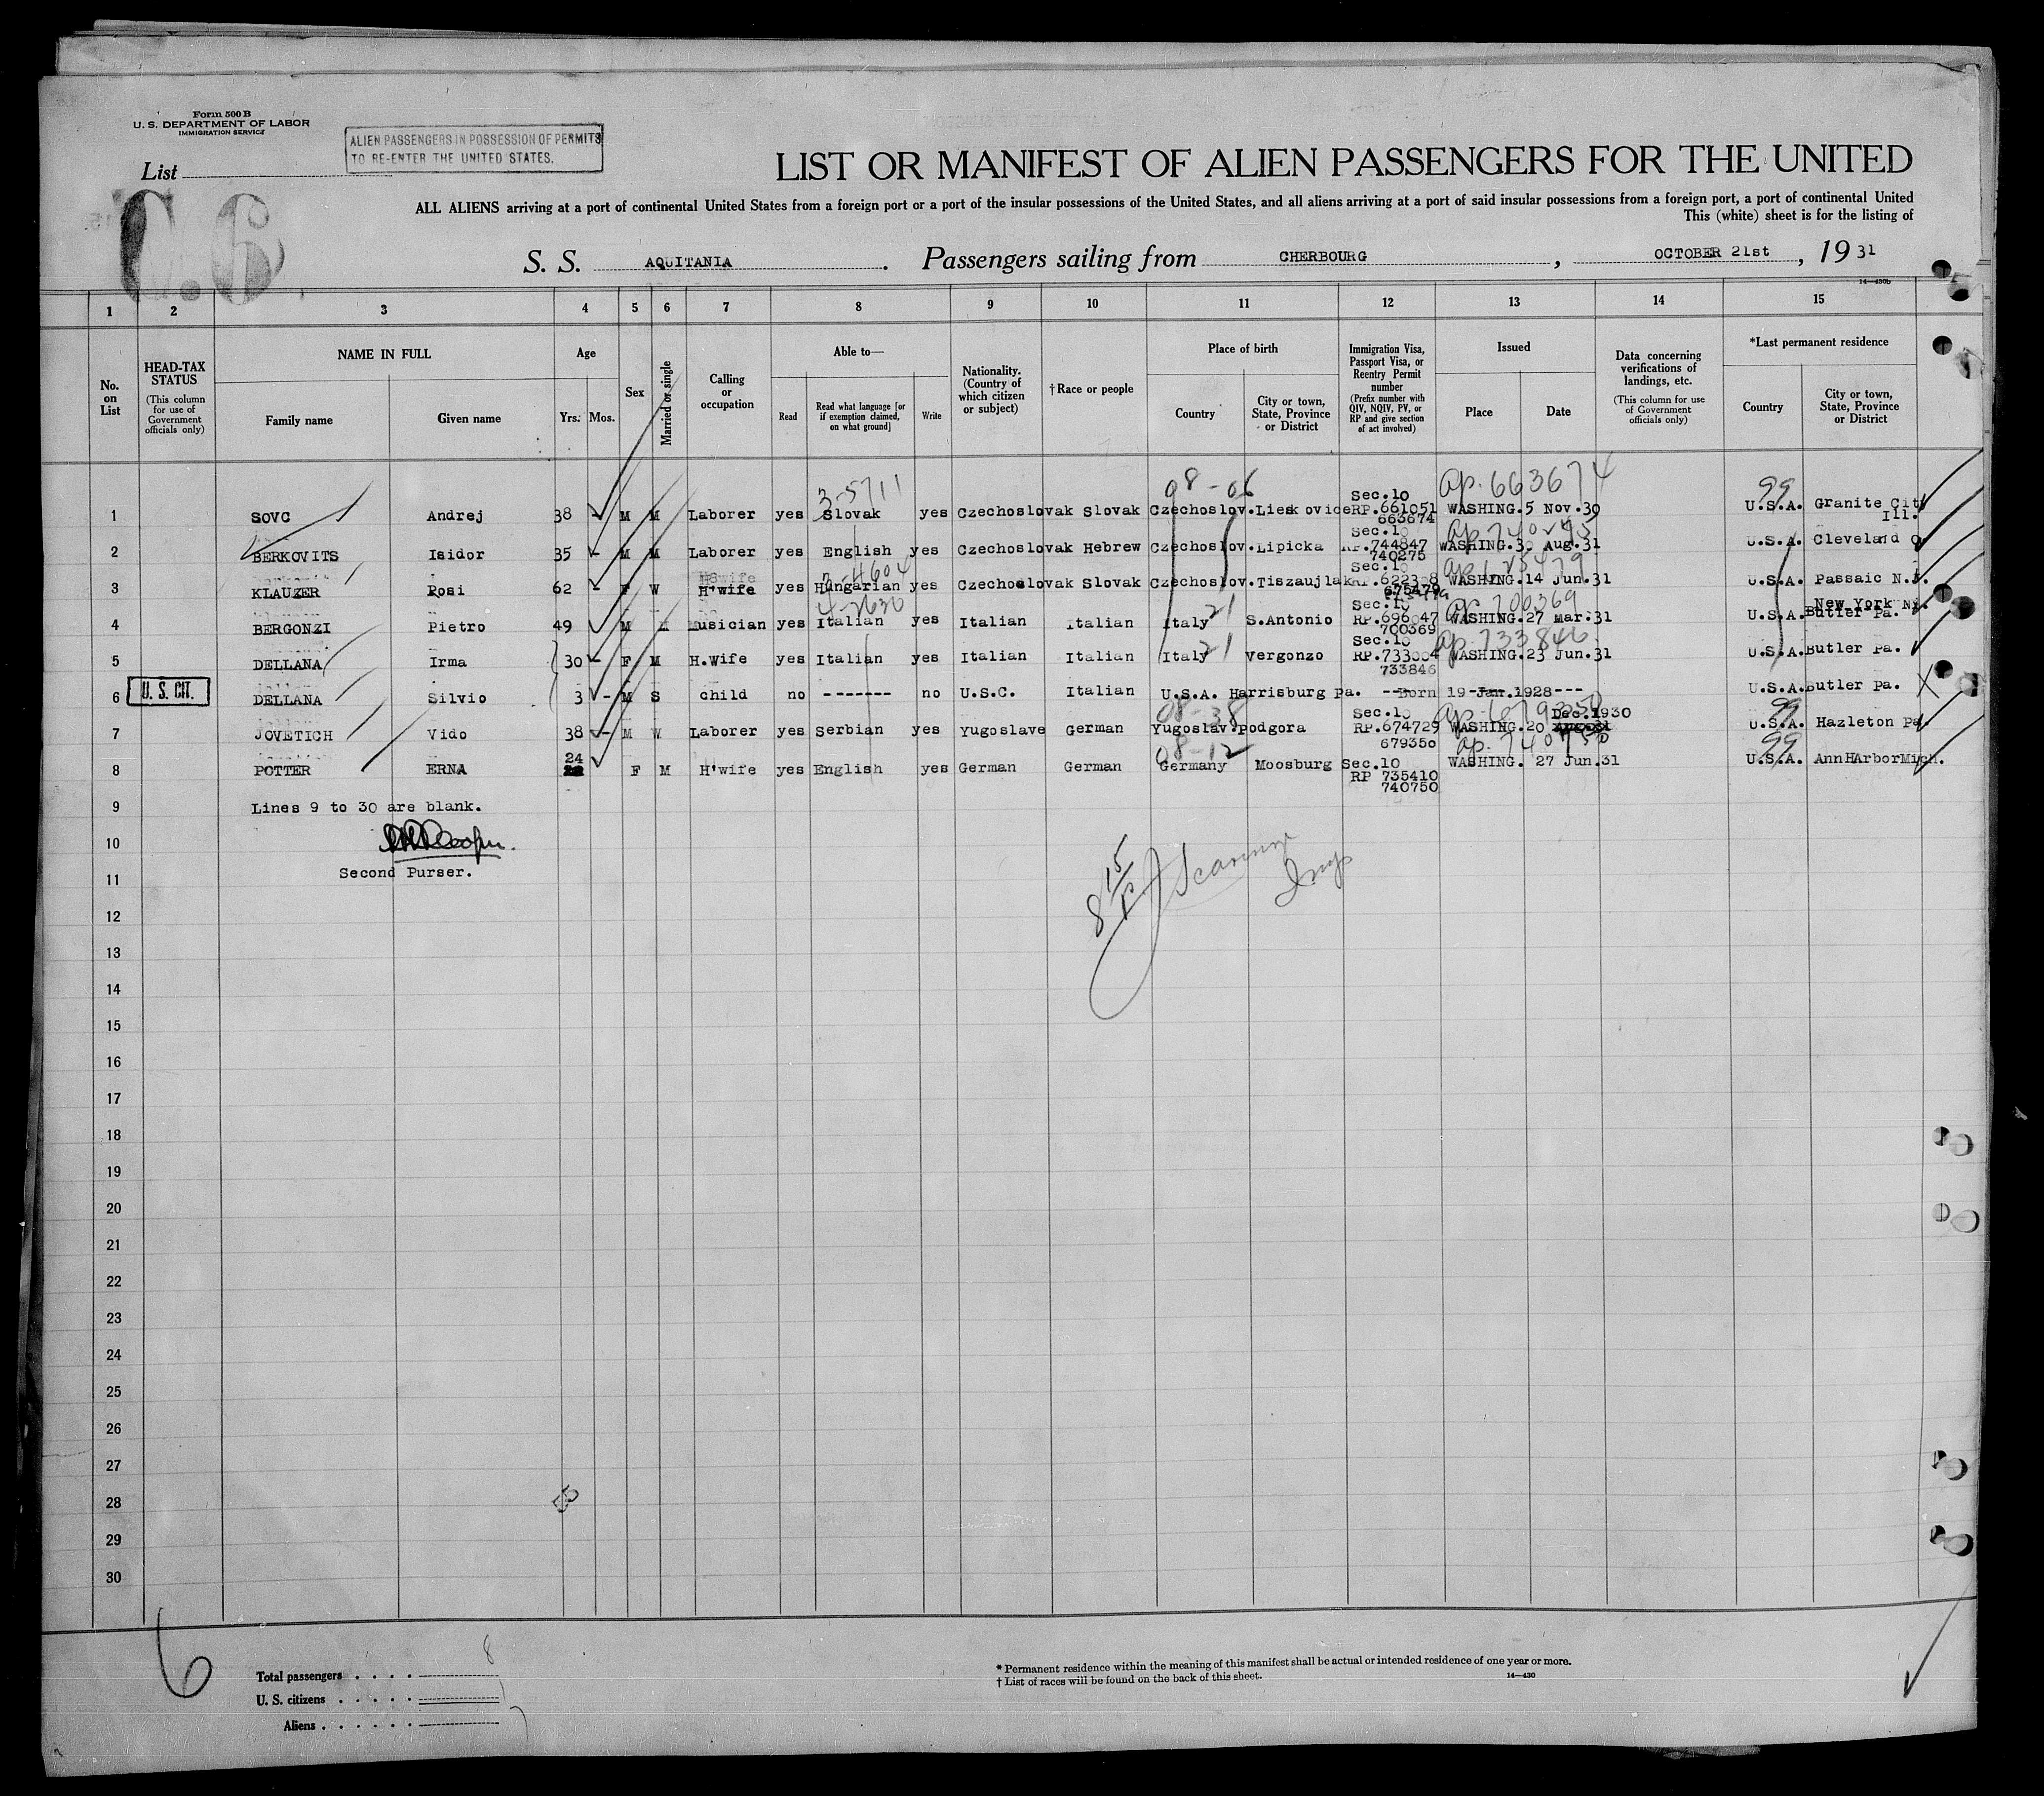 Form 500 B
U. S. DEPARTMENT OF LABOR
IMMIGRATION SERVICE
ALIEN PASSENGERS IN POSSESSION OF PERMITS
TO RE-ENTER THE UNITED STATES.
List
C.6
LIST OR MANIFEST OF ALIEN PASSENGERS FOR THE UNITED
ALL ALIENS arriving at a port of continental United States from a foreign port or a port of the insular possessions of the United States, and all aliens arriving at a port of said insular possessions from a foreign port, a port of continental United
This (white) sheet is for the listing of
S. S. AQUITANIA. Passengers sailing from CHERBOURG, OCTOBER 21st, 19 31
14—430b
1 2 3 4 5 6 7 8 9 10 11 12 13 14 15
No. on List
HEAD-TAX STATUS (This column for use of Government officials only)
NAME IN FULL
Family name
Given name
Age
Yrs. Mos.
Sex
Married or single
Calling or occupation
Able to—
Read
Read what language [or if exemption claimed, on what ground]
Write
Nationality. (Country of which citizen or subject)
†Race or people
Place of birth
Country
City or town, State, Province or District
Immigration Visa, Passport Visa, or Reentry Permit number (Prefix number with QIV, NQIV, PV, or RP and give section of act involved)
Issued
Place
Date
Data concerning verifications of landings, etc. (This column for use of Government officials only)
*Last permanent residence
Country
City or town, State, Province or District
3-5711 08-06 Sec.10 ap. 663674 99
1 SOVC Andrej 38 - M M Laborer yes Slovak yes Czechoslovak Slovak Czechoslov. Lieskovice RP.661051 WASHING. 5 Nov.30 U.S.A. Granite City Ill.
663674
Sec.10
2 BERKOVITS Isidor 35 - M M Laborer yes English yes Czechoslovak Hebrew Czechoslov. Lipicka RP.744847 WASHING. 30 Aug.31 U.S.A. Cleveland O.
740275
H'wife 3-4604 Sec.10
3 KLAUZER Rosi 62 - F W H'wife yes Hungarian yes Czechoslovak Slovak Czechoslov. Tiszaujlak RP.622308 WASHING. 14 Jun.31 U.S.A. Passaic N.J.
675479
4-7630 21 Sec.10 ap 700369 New York NY.
4 BERGONZI Pietro 49 M M Musician yes Italian yes Italian Italian Italy S.Antonio RP.696047 WASHING. 27 Mar.31 U.S.A. Butler Pa.
700369
21 Sec.10 ap. 733846
5 DELLANA Irma 30 - F M H.Wife yes Italian yes Italian Italian Italy Vergonzo RP.733004 WASHING. 23 Jun.31 U.S.A. Butler Pa.
733846
U. S. CIT.
6 DELLANA Silvio 3 - M S child no ------- no U.S.C. Italian U.S.A. Harrisburg Pa. --Born 19-Jan.1928--- U.S.A. Butler Pa.
08-38 Sec.10 ap. 679350 Dec.1930 99
7 JOVETICH Vido 38 - M W Laborer yes Serbian yes Yugoslave German Yugoslav. Podgora RP.674729 WASHING. 20 U.S.A. Hazleton Pa.
679350
24 08-12 ap. 740750 99
8 POTTER ERNA F M H'wife yes English yes German German Germany Moosburg Sec.10 WASHING. 27 Jun.31 U.S.A. AnnHArborMich.
RP 735410
740750
9 Lines 9 to 30 are blank.
10
Second Purser.
11
8 15
12
13
14
15
16
17
18
19
20
21
22
23
24
25
26
27
28
29
30
6
Total passengers . . . . 8
U. S. citizens . . . . . 1
Aliens . . . . . . 7
* Permanent residence within the meaning of this manifest shall be actual or intended residence of one year or more.
† List of races will be found on the back of this sheet.
14—430